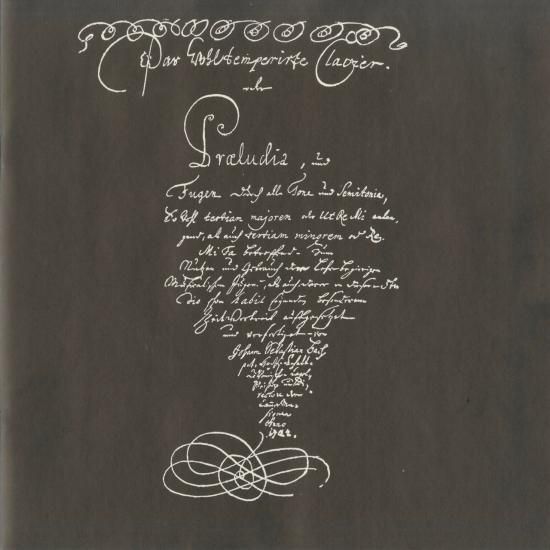 Das Wohltemperirte Clavier.
oder
Præludia, und
Fugen durch alle Tone und Semitonia,
So wohl tertiam majorem oder Ut Re Mi anlan,
gend, als auch tertiam minorem oder Re
Mi Fa betreffend. Zum
Nutzen und Gebrauch der Lehrbegierigen
Musicalischen Jugend, als auch derer in diesem stu
dio schon habil seyenden besonderem
Zeit Vertreib auffgesetzet
und verfertiget von
Johann Sebastian Bach
Anno
1722.